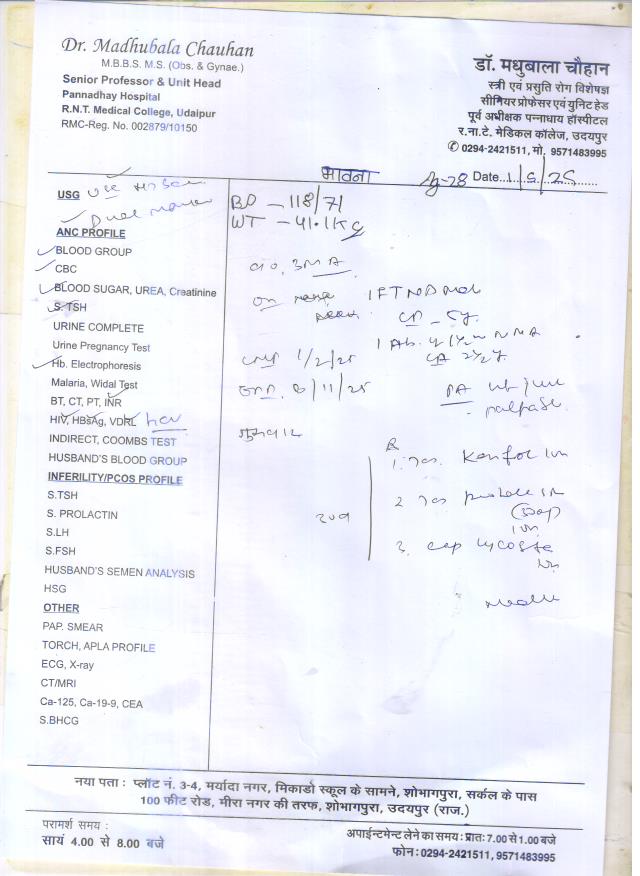 Dr. Madhubala Chauhan
M.B.B.S. M.S. (Obs. & Gynae.)
Senior Professor & Unit Head
Pannadhay Hospital
R.N.T. Medical College, Udaipur
RMC-Reg. No. 002879/10150
डॉ. मधुबाला चौहान
स्त्री एवं प्रसुति रोग विशेषज्ञ
सीनियर प्रोफेसर एवं युनिट हेड
पूर्व अधीक्षक पन्नाधाय हॉस्पीटल
र.ना.टे. मेडिकल कॉलेज, उदयपुर
✆ 0294-2421511, मो. 9571483995
भावना
Ag-28 Date 1/5/25
USG
Dual marker
ANC PROFILE
BLOOD GROUP
CBC
BLOOD SUGAR, UREA, Creatinine
S. TSH
URINE COMPLETE
Urine Pregnancy Test
Hb. Electrophoresis
Malaria, Widal Test
BT, CT, PT, INR
HIV, HBsAg, VDRL HCV
INDIRECT, COOMBS TEST
HUSBAND'S BLOOD GROUP
INFERILITY/PCOS PROFILE
S.TSH
S. PROLACTIN
S.LH
S.FSH
HUSBAND'S SEMEN ANALYSIS
HSG
OTHER
PAP. SMEAR
TORCH, APLA PROFILE
ECG, X-ray
CT/MRI
Ca-125, Ca-19-9, CEA
S.BHCG
BP – 118/71
WT – 41.1 Kg
c/o. 3 M A
1 FTND
LMP 1/2/25
EDD 8/11/25
PA
R
1.
2
3. cap Lycosta
नया पता : प्लॉट नं. 3-4, मर्यादा नगर, मिकाडो स्कूल के सामने, शोभागपुरा, सर्कल के पास
100 फीट रोड, मीरा नगर की तरफ, शोभागपुरा, उदयपुर (राज.)
परामर्श समय :
सायं 4.00 से 8.00 बजे
अपाईन्टमेन्ट लेने का समय : प्रातः 7.00 से 1.00 बजे
फोन : 0294-2421511, 9571483995